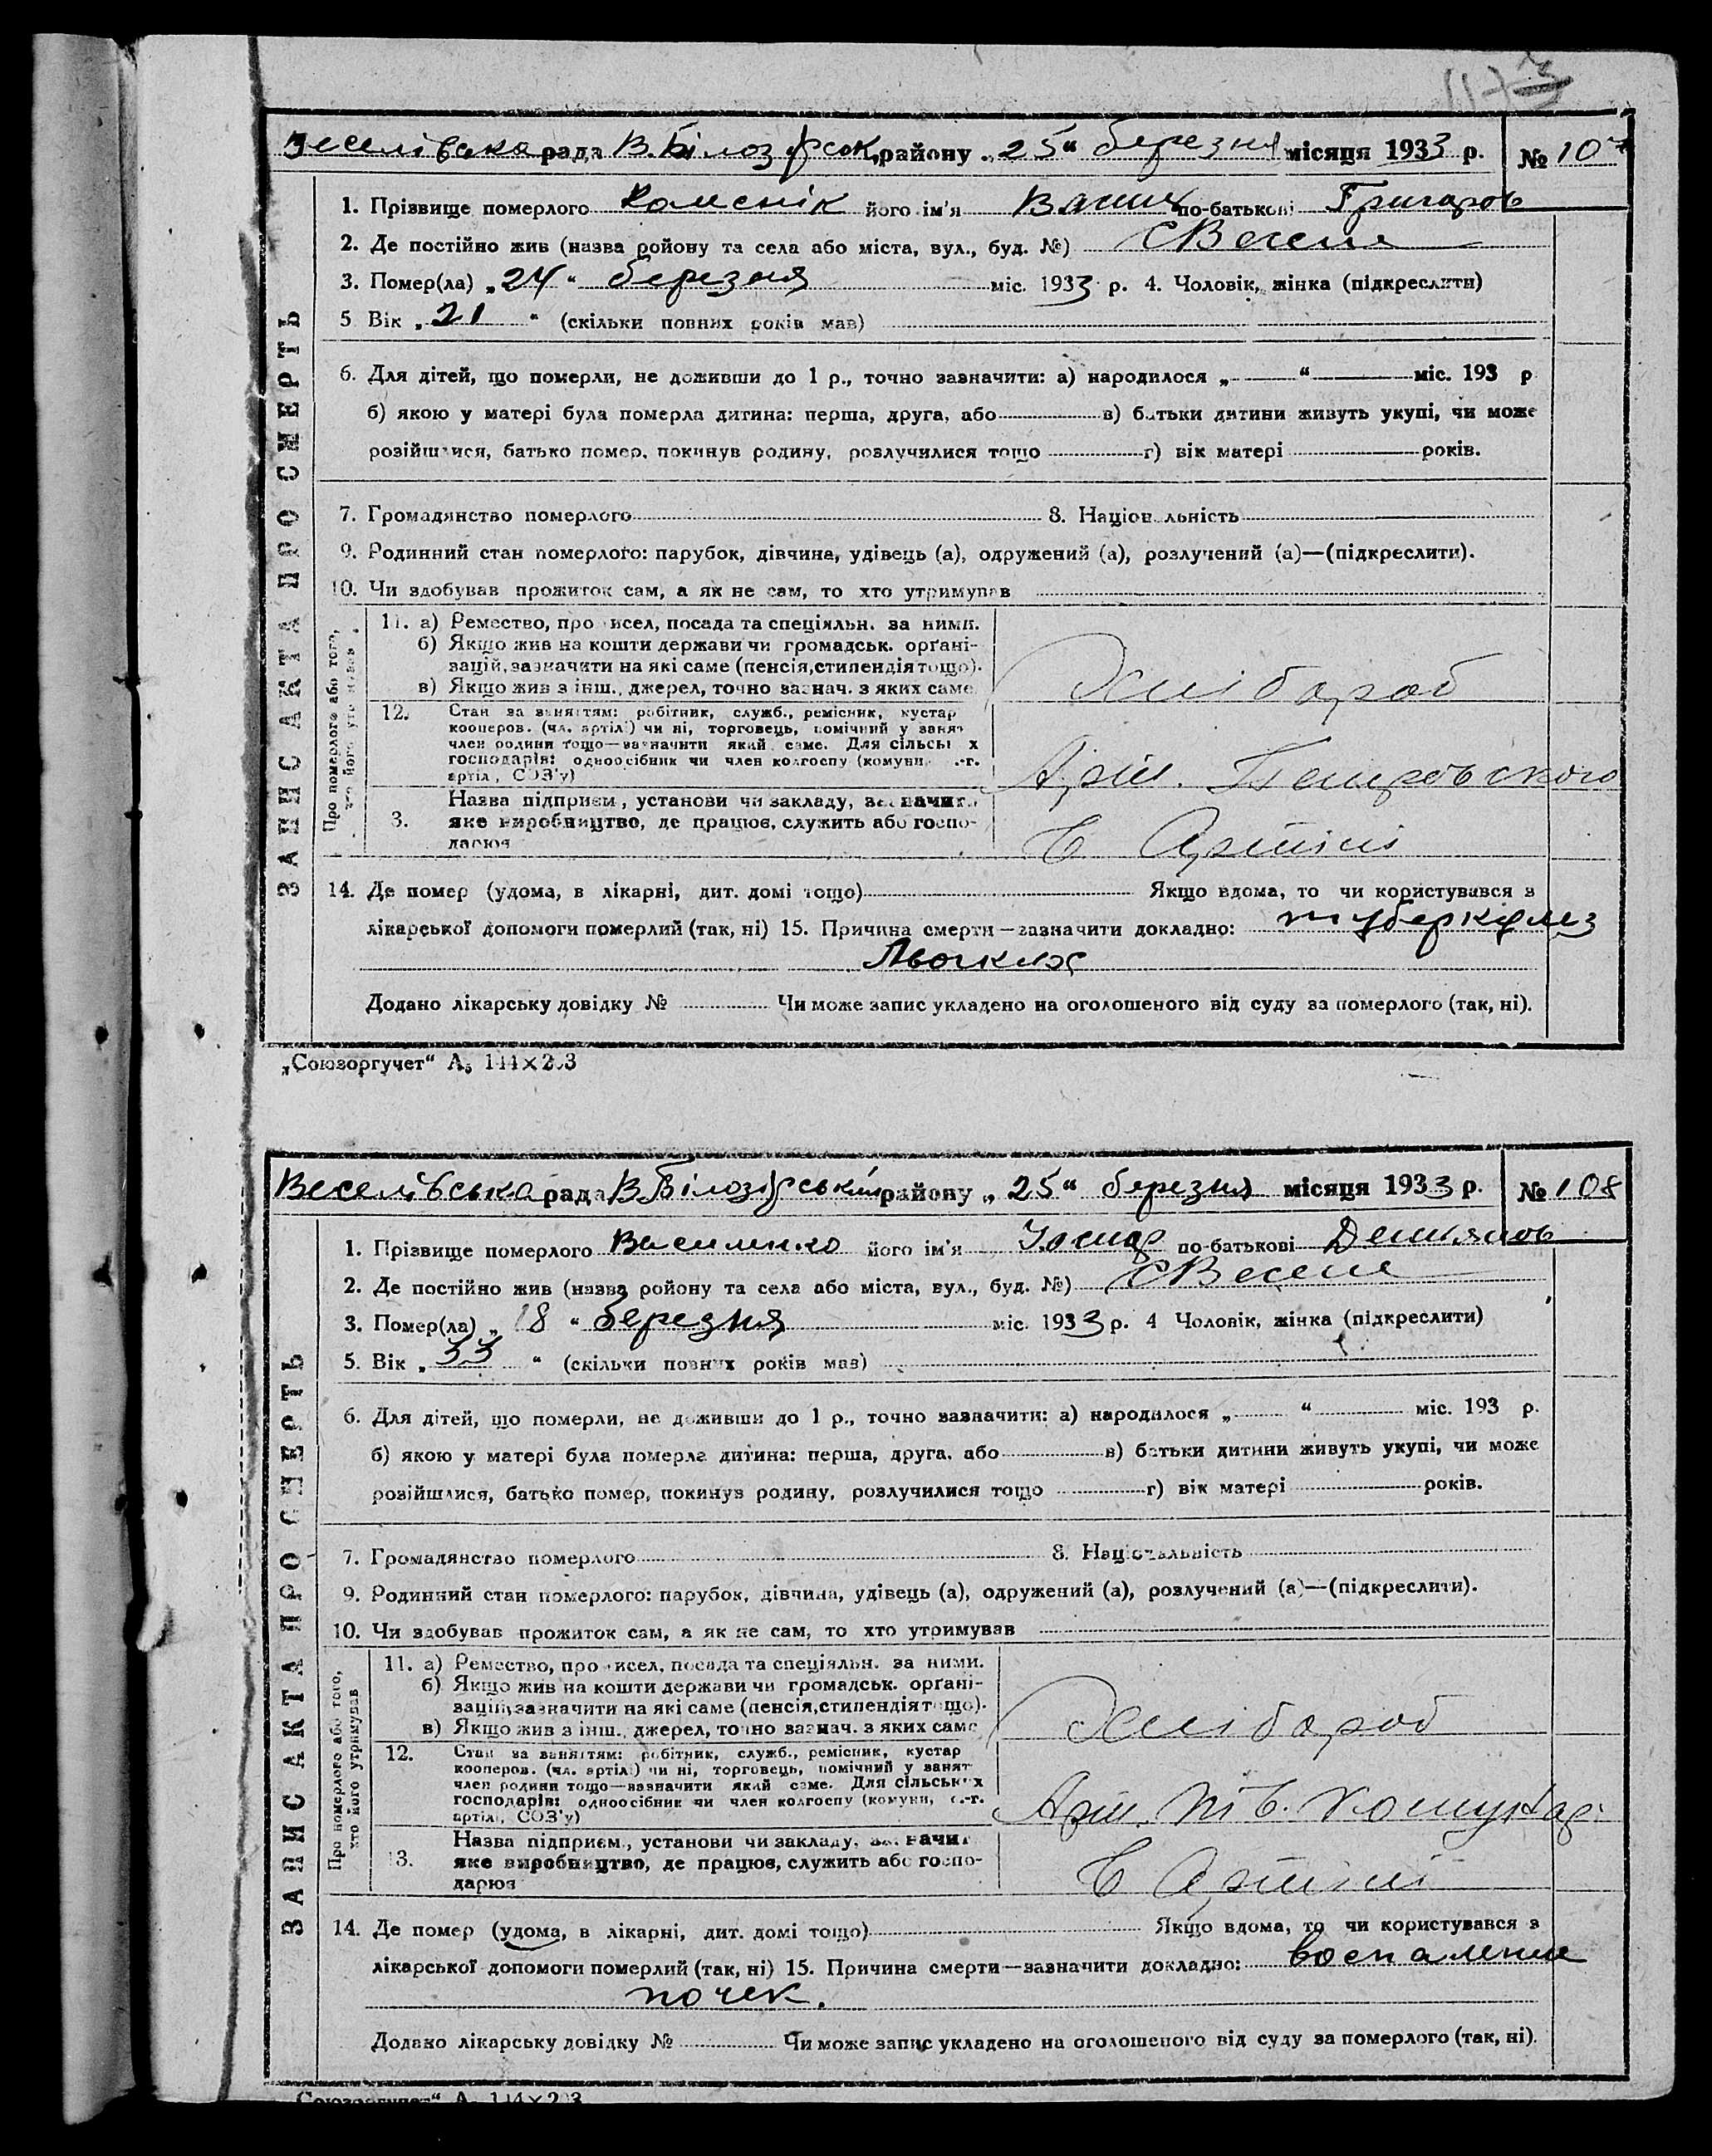 Веселівська рада В. Білозірськ. району „25“ березня місяця 1933 р. № 107
1. Прізвище померлого його ім'я по-батькові Григоров
2. Де постійно жив (назва ройону та села або міста, вул., буд. №) С Веселе
3. Помер(ла) „24“ березня міс. 1933 р. 4. Чоловік, жінка (підкреслити)
5 Вік „21“ (скільки повних років мав)
6. Для дітей, що померли, не доживши до 1 р., точно зазначити: а) народилося „ “ міс. 193 р
б) якою у матері була померла дитина: перша, друга, або в) батьки дитини живуть укупі, чи може
розійшлися, батько помер, покинув родину, розлучилися тощо г) вік матері років.
7. Громадянство померлого 8. Національність
9. Родинний стан померлого: парубок, дівчина, удівець (а), одружений (а), розлучений (а)—(підкреслити).
10. Чи здобував прожиток сам, а як не сам, то хто утримував
ЗАПИС АКТА ПРО СМЕРТЬ
Про померлого або того, хто його утримував
11. а) Ремество, промисел, посада та спеціяльн. за ними.
б) Якщо жив на кошти держави чи громадськ. орґані-
зацій, зазначити на які саме (пенсія, стипендія тощо).
в) Якщо жив з інш. джерел, точно зазнач. з яких саме
Хлібороб
12. Стан за заняттям: робітник, служб., ремісник, кустар
кооперов. (чл. артілі) чи ні, торговець, помічний у занят
член родини тощо—зазначити який саме. Для сільських
господарів: одноосібник чи член колгоспу (комуни, с.-г.
артіл, СОЗ'у)
Арт. Петровського
3. Назва підприєм, установи чи закладу, зазначит
яке виробництво, де працює, служить або госпо-
дарює
В Артілі
14. Де помер (удома, в лікарні, дит. домі тощо) Якщо вдома, то чи користувався з
лікарської допомоги померлий (так, ні) 15. Причина смерти—зазначити докладно: туберкулез
Льогких
Додано лікарську довідку № Чи може запис укладено на оголошеного від суду за померлого (так, ні).
„Союзоргучет“ А5 144×203
Веселівська рада В. Білозірський району „25“ березня місяця 1933 р. № 108
1. Прізвище померлого Василенко його ім'я Йосип по-батькові Демянов
2. Де постійно жив (назва ройону та села або міста, вул., буд. №) С Веселе
3. Помер(ла) „18“ березня міс. 1933 р. 4 Чоловік, жінка (підкреслити)
5. Вік „33“ (скільки повних років мав)
6. Для дітей, що померли, не доживши до 1 р., точно зазначити: а) народилося „ “ міс. 193 р.
б) якою у матері була померла дитина: перша, друга, або в) батьки дитини живуть укупі, чи може
розійшлися, батько помер, покинув родину, розлучилися тощо г) вік матері років.
7. Громадянство померлого 8. Національність
9. Родинний стан померлого: парубок, дівчина, удівець (а), одружений (а), розлучений (а)—(підкреслити).
10. Чи здобував прожиток сам, а як не сам, то хто утримував
ЗАПИС АКТА ПРО СМЕРТЬ
Про померлого або того, хто його утримував
11. а) Ремество, промисел, посада та спеціяльн. за ними.
б) Якщо жив на кошти держави чи громадськ. орґані-
зацій, зазначити на які саме (пенсія, стипендія тощо).
в) Якщо жив з інш. джерел, точно зазнач. з яких саме
Хлібороб
12. Стан за заняттям: робітник, служб., ремісник, кустар
кооперов. (чл. артілі) чи ні, торговець, помічний у занят
член родини тощо—зазначити який саме. Для сільських
господарів: одноосібник чи член колгоспу (комуни, с.-г.
артіл, СОЗ'у)
Арт.
13. Назва підприєм., установи чи закладу, зазначит
яке виробництво, де працює, служить або госпо-
дарює
В Артілі
14. Де помер (удома, в лікарні, дит. домі тощо) Якщо вдома, то чи користувався з
лікарської допомоги померлий (так, ні) 15. Причина смерти—зазначити докладно: воспаление
почек.
Додано лікарську довідку № Чи може запис укладено на оголошеного від суду за померлого (так, ні).
„Союзоргучет“ А5 144×203